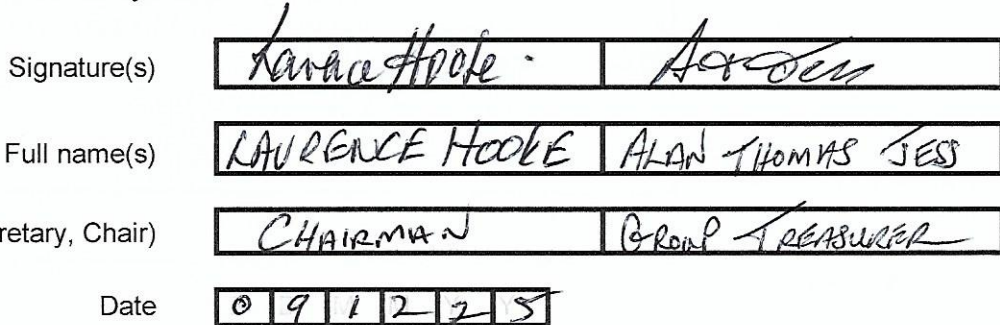 Signature(s) Hoole
Full name(s) LAURENCE HOOLE ALAN THOMAS JESS
retary, Chair) CHAIRMAN GROUP TREASURER
Date 0 9 1 2 2 5